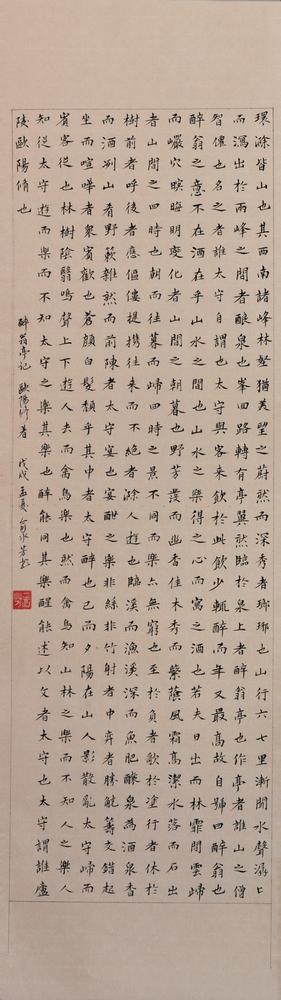 環滁皆山也其西南諸峰林壑猶美望之蔚然而深秀者瑯琊也山行六七里漸聞水聲潺〻
而瀉出於兩峰之間者釀泉也峯回路轉有亭翼然臨於泉上者醉翁亭也作亭者誰山之僧
智僊也名之者誰太守自謂也太守與客來飲於此飲少輒醉而年又最高故自號曰醉翁也
醉翁之意不在酒在乎山水之間也山水之樂得之心而寓之酒也若夫日出而林霏開雲歸
而巖穴暝晦明變化者山間之朝暮也野芳發而幽香佳木秀而繁蔭風霜高潔水落而石出
者山間之四時也朝而往暮而歸四時之景不同而樂亦無窮也至於負者歌於塗行者休於
樹前者呼後者應傴僂提攜往來而不絕者滁人遊也臨溪而漁溪深而魚肥釀泉為酒泉香
而酒冽山肴野蔌雜然而前陳者太守宴也宴酣之樂非絲非竹射者中弈者勝觥籌交錯起
坐而喧嘩者眾賓歡也蒼顏白髮頹乎其中者太守醉也已而夕陽在山人影散亂太守歸而
賓客從也林樹陰翳鳴聲上下遊人去而禽鳥樂也然而禽鳥知山林之樂而不知人之樂人
知從太守遊而樂而不知太守之樂其樂也醉能同其樂醒能述以文者太守也太守謂誰廬
陵歐陽脩也
醉翁亭記 歐陽修著 戊戌孟夏